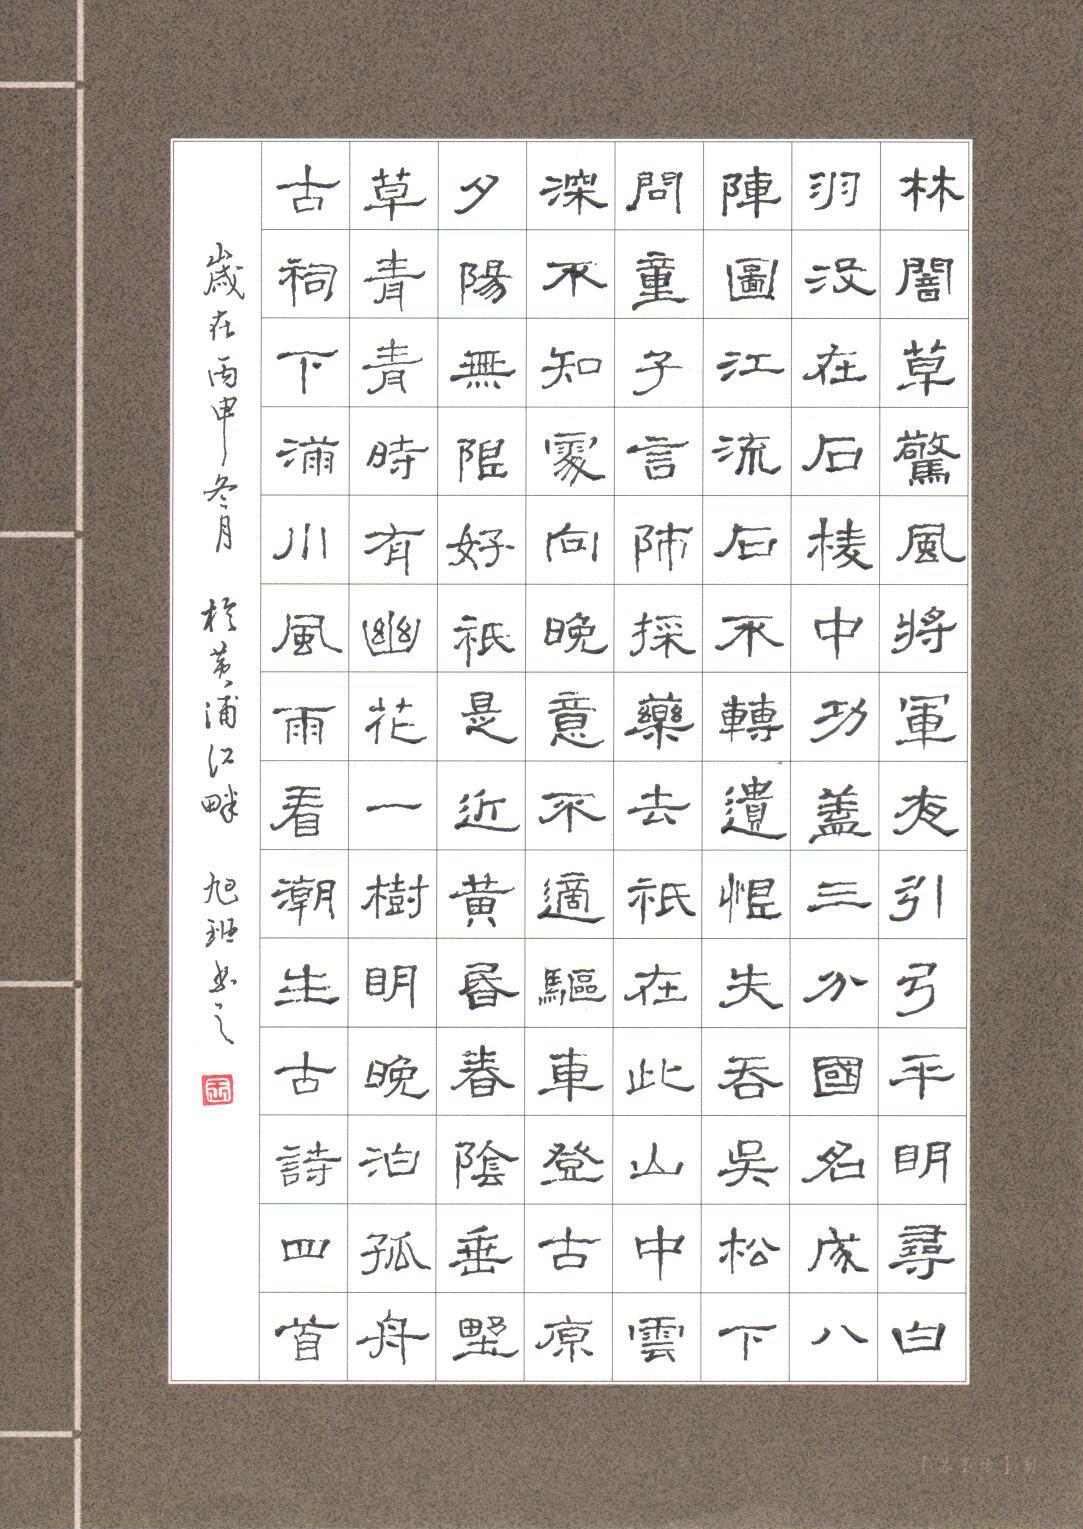 林闇草驚風將軍夜引弓平明尋白
羽没在石棱中功蓋三分國名成八
陣圖江流石不轉遺恨失吞吳松下
問童子言師採藥去祇在此山中雲
深不知處向晚意不適驅車登古原
夕陽無限好祇是近黄昏春陰垂野
草青青時有幽花一樹明晚泊孤舟
古祠下滿川風雨看潮生古詩四首
歲在丙申冬月 於黄浦江畔 旭班書之